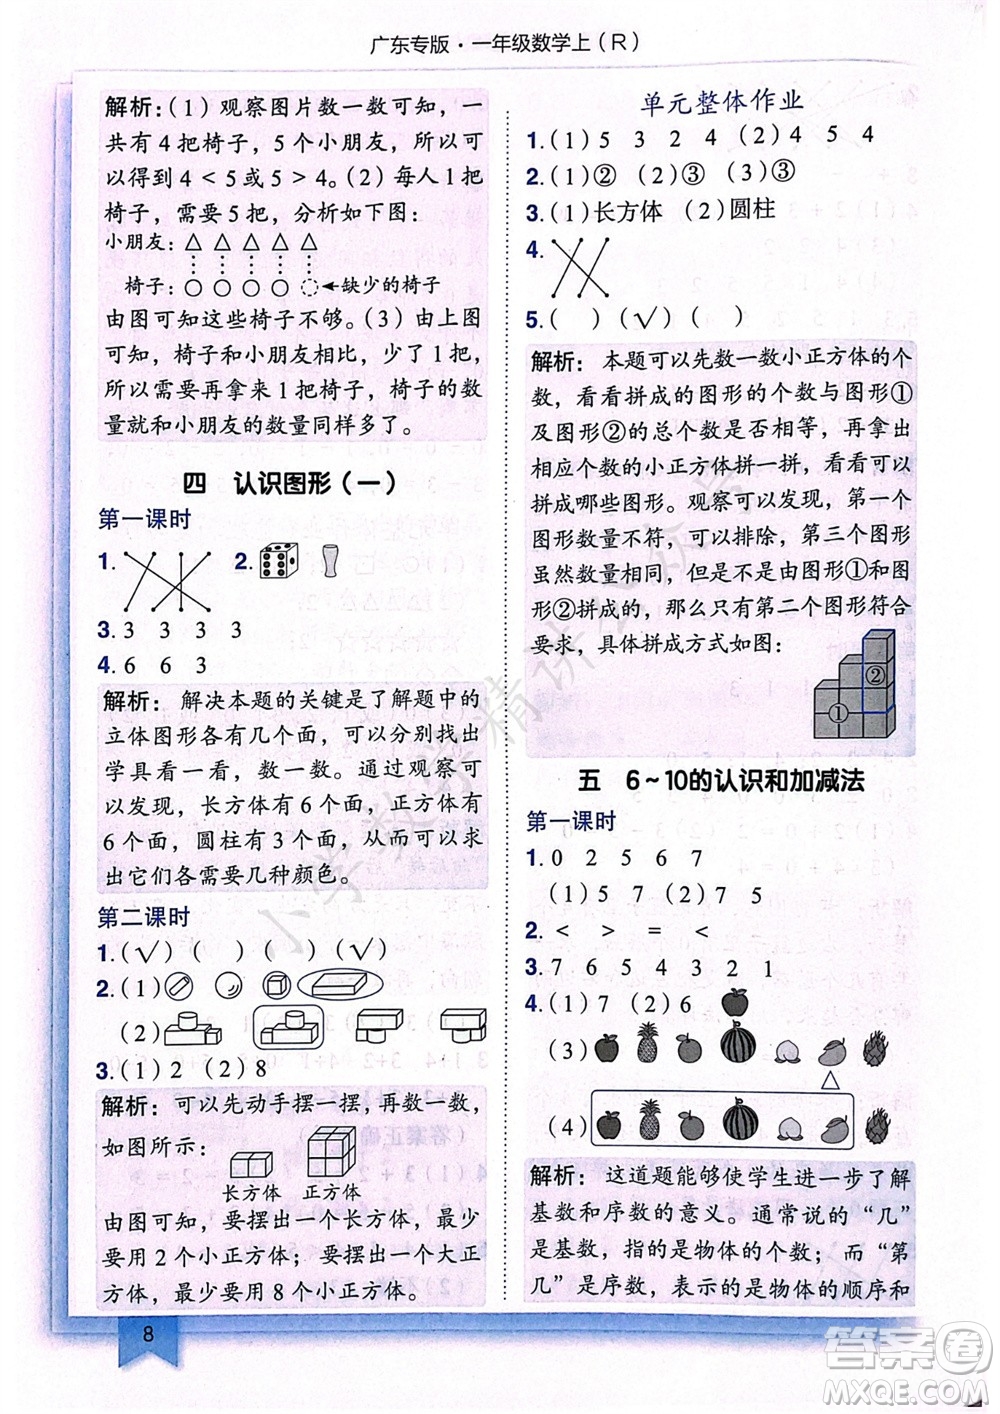 广东专版·一年级数学上(R)
解析:(1)观察图片数一数可知,一
共有4把椅子,5个小朋友,所以可
以得到4<5或5>4。(2)每人1把
椅子,需要5把,分析如下图:
小朋友:△ △ △ △ △
椅子:○ ○ ○ ○ ○←缺少的椅子
由图可知这些椅子不够。(3)由上图
可知,椅子和小朋友相比,少了1把,
所以需要再拿来1把椅子,椅子的数
量就和小朋友的数量同样多了。
四 认识图形(一)
第一课时
1. 2.
3. 3 3 3 3
4. 6 6 3
解析:解决本题的关键是了解题中的
立体图形各有几个面,可以分别找出
学具看一看,数一数。通过观察可
以发现,长方体有6个面,正方体有
6个面,圆柱有3个面,从而可以求
出它们各需要几种颜色。
第二课时
1.(√) ( ) ( ) (√)
2.(1)
(2)
3.(1)2 (2)8
解析:可以先动手摆一摆,再数一数,
如图所示:
长方体 正方体
由图可知,要摆出一个长方体,最少
要用2个小正方体;要摆出一个大正
方体,最少要用8个小正方体。
8
单元整体作业
1.(1)5 3 2 4 (2)4 5 4
2.(1)② (2)③ (3)③
3.(1)长方体 (2)圆柱
4.
5.( ) (√) ( )
解析:本题可以先数一数小正方体的个
数,看看拼成的图形的个数与图形①
及图形②的总个数是否相等,再拿出
相应个数的小正方体拼一拼,看看可以
拼成哪些图形。观察可以发现,第一个
图形数量不符,可以排除,第三个图形
虽然数量相同,但是不是由图形①和图
形②拼成的,那么只有第二个图形符合
要求,具体拼成方式如图:
① ②
五 6~10的认识和加减法
第一课时
1. 0 2 5 6 7
(1)5 7 (2)7 5
2. < > = <
3. 7 6 5 4 3 2 1
4.(1)7 (2)6
(3)
△
(4)
解析:这道题能够使学生进一步了解
基数和序数的意义。通常说的“几”
是基数,指的是物体的个数;而“第
几”是序数,表示的是物体的顺序和
小学数学精讲公众号
答案圈
MXQE.COM